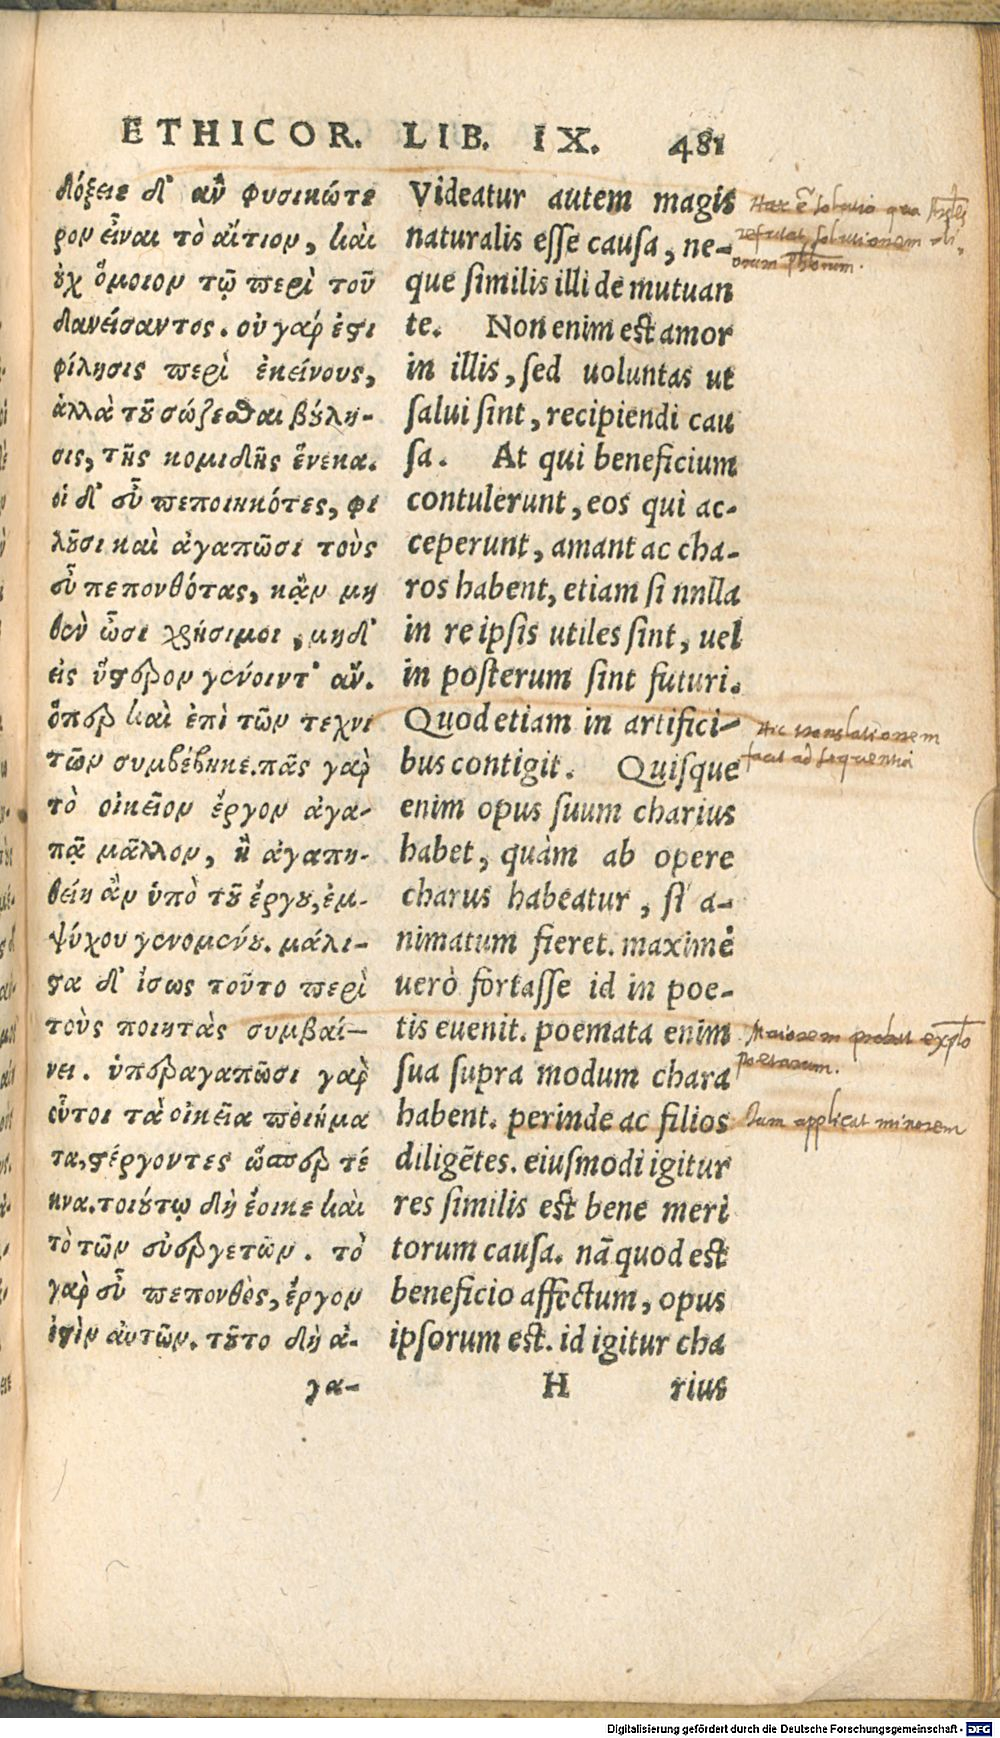 ETHICOR. LIB. IX. 481
δόξειε δ' ἂν φυσικώτε
ρον εἶναι τὸ αἴτιον, καὶ
οὐχ ὅμοιον τῷ περὶ τοῦ
δανείσαντος. οὐ γάρ ἐστι
φίλησις περὶ ἐκείνους,
ἀλλὰ τοῦ σώζεσθαι βούλη-
σις, τῆς κομιδῆς ἕνεκα.
οἱ δ' εὖ πεποιηκότες, φι
λοῦσι καὶ ἀγαπῶσι τοὺς
εὖ πεπονθότας, κἂν μη
θὲν ὦσι χρήσιμοι, μηδ'
εἰς ὕστερον γένοιντ' ἄν.
ὅπερ καὶ ἐπὶ τῶν τεχνι
τῶν συμβέβηκε. πᾶς γὰρ
τὸ οἰκεῖον ἔργον ἀγα-
πᾷ μᾶλλον, ἢ ἀγαπη-
θείη ἂν ὑπὸ τοῦ ἔργου, ἐμ-
ψύχου γενομένου. μάλι-
στα δ' ἴσως τοῦτο περὶ
τοὺς ποιητὰς συμβαί-
νει. ὑπεραγαπῶσι γὰρ
οὗτοι τὰ οἰκεῖα ποιήμα
τα, στέργοντες ὥσπερ τέ
κνα. τοιούτῳ δὴ ἔοικε καὶ
τὸ τῶν εὐεργετῶν. τὸ
γὰρ εὖ πεπονθὸς, ἔργον
ἐστὶν αὐτῶν. τοῦτο δὴ ἀ-
γα-
Videatur autem magis
naturalis esse causa, ne-
que similis illi de mutuan
te. Non enim est amor
in illis, sed uoluntas ut
salui sint, recipiendi cau
sa. At qui beneficium
contulerunt, eos qui ac-
ceperunt, amant ac cha-
ros habent, etiam si nnlla
in re ipsis utiles sint, uel
in posterum sint futuri.
Quod etiam in artifici-
bus contigit. Quisque
enim opus suum charius
habet, quàm ab opere
charus habeatur, si a-
nimatum fieret. maximè
uerò fortasse id in poe-
tis euenit. poemata enim
sua supra modum chara
habent. perinde ac filios
diligẽtes. eiusmodi igitur
res similis est bene meri
torum causa. nã quod est
beneficio affectum, opus
ipsorum est. id igitur cha
H rius
Haec ẽ solutio qua
refutat solutionem ali-
orum
Hic translationem
facit ad sequentia
Maiorem probat explo
poetarum.
Iam applicat minorem
Digitalisierung gefördert durch die Deutsche Forschungsgemeinschaft - DFG